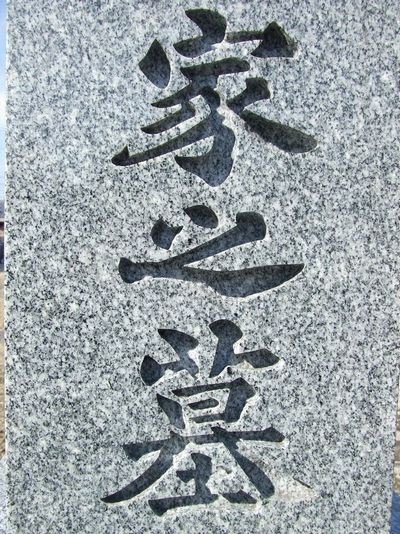 家之墓